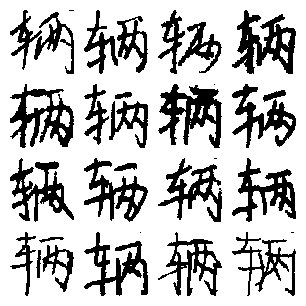 辆辆辆辆
辆辆辆辆
辆辆辆辆
辆辆辆辆